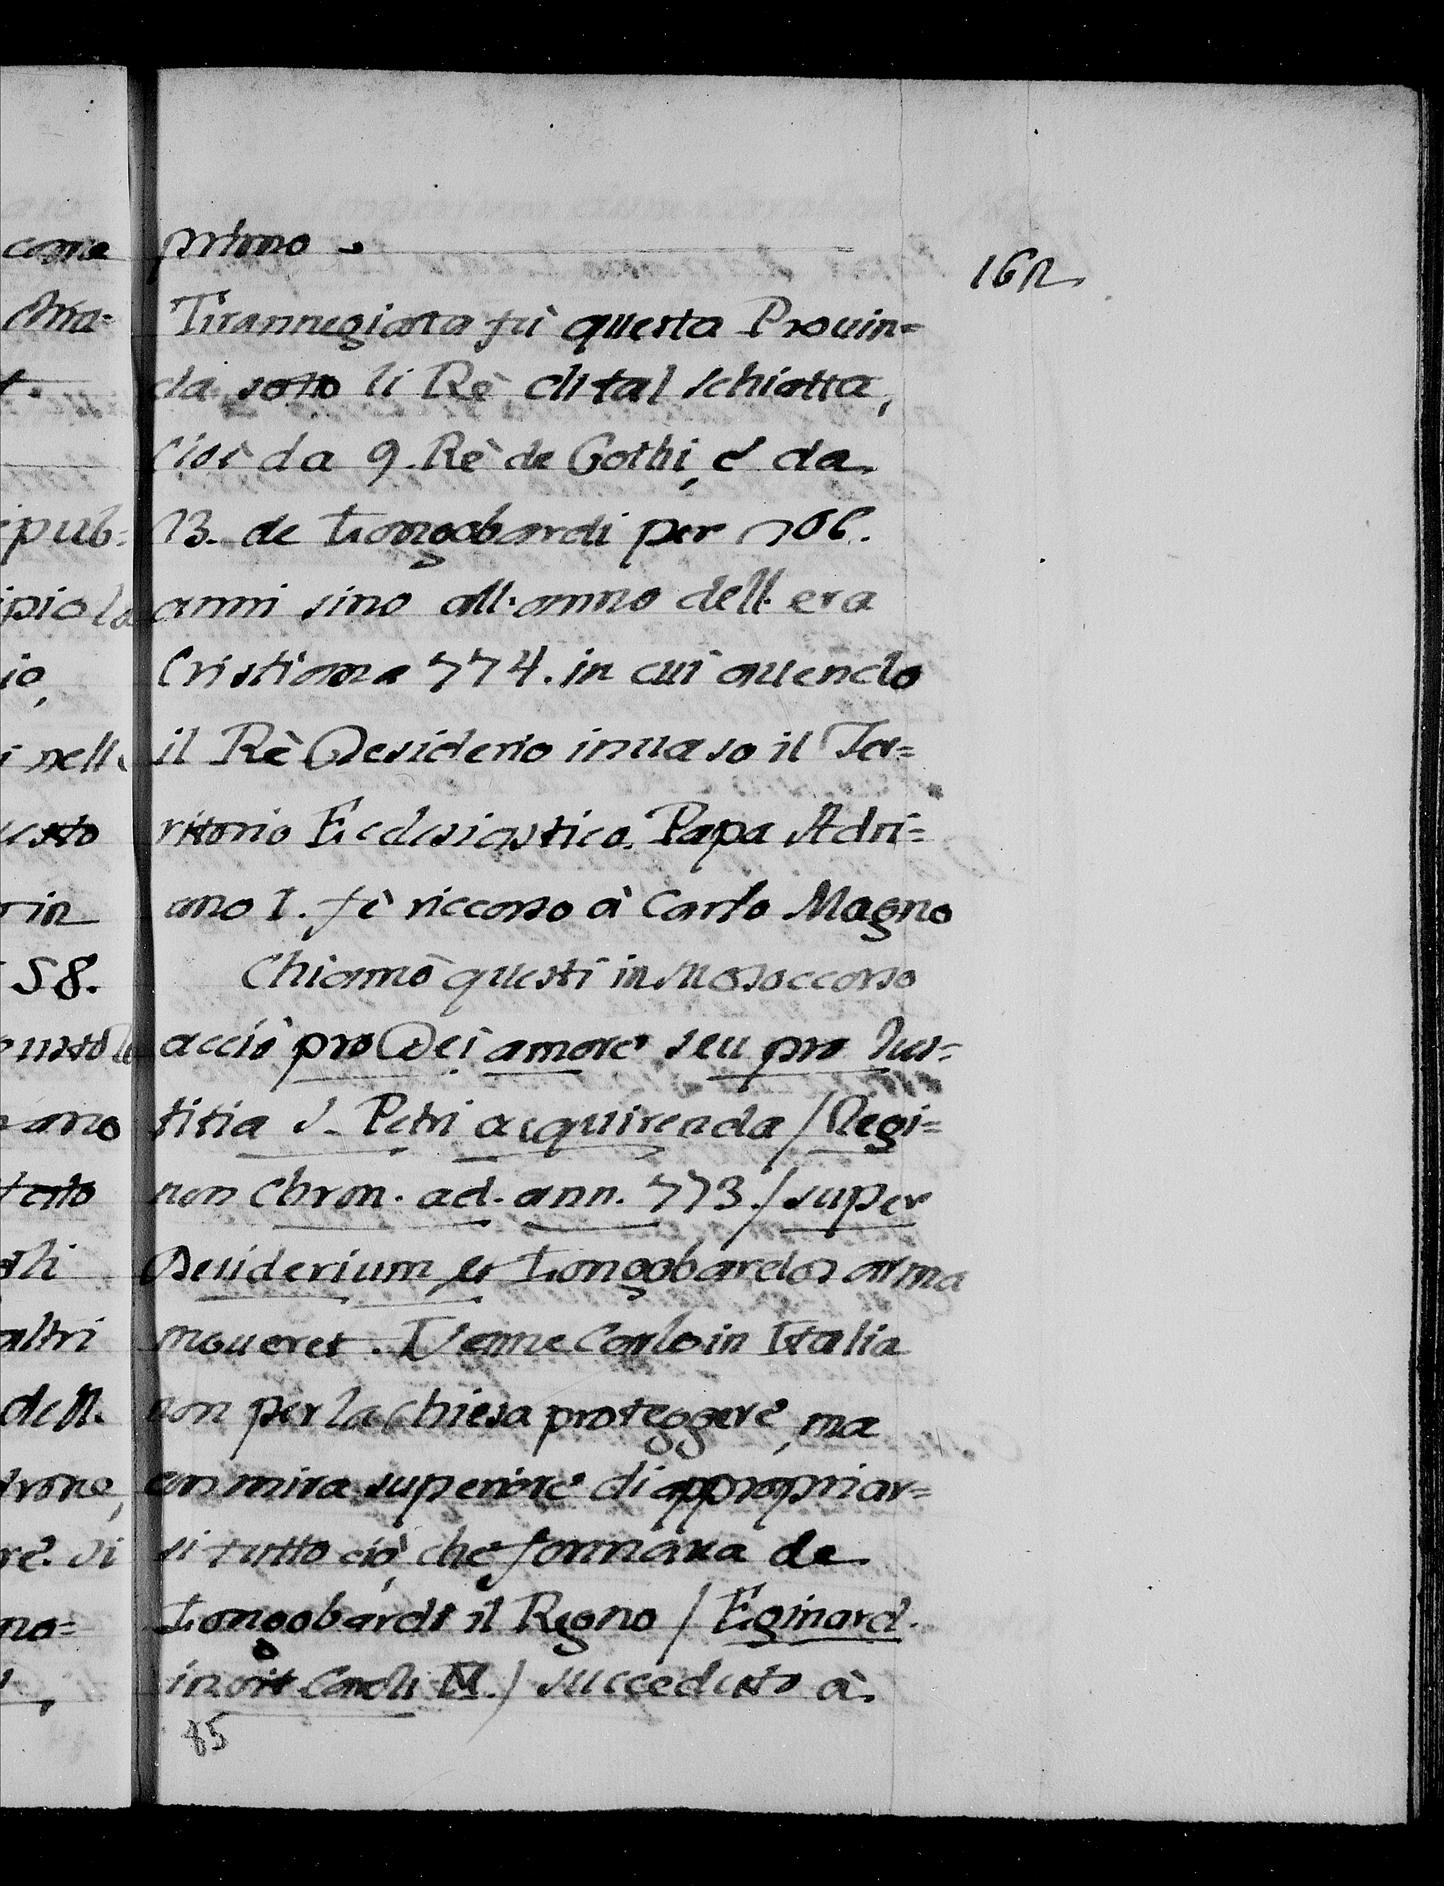 primo.
162
Tirannegiata fù questa Prouin=
cia sotto li Rè di tal schiatta,
cioè da 9. Rè de Gothi, è da
13. de Longobardi per 306.
anni sino all'anno dell'era
Cristiana 774. in cui auendo
il Rè Desiderio inuaso il Ter=
ritorio Ecclesiastico. Papa Adri=
ano I. fè riccorso à Carlo Magno
Chiamò questi in suo soccorso
acciò pro Dei amore seu pro Jus=
titia S. Petri acquirenda / Regi=
non Chron. ad. ann. 773. / super
Desiderium et Longobardos arma
moueret. Venne Carlo in Italia
non per la chiesa proteggere, ma
con mira superiore di appropriar=
si tutto ciò, che formaua de
Longobardi il Regno / Eginard.
in vit Caroli M. / succeduto à
85